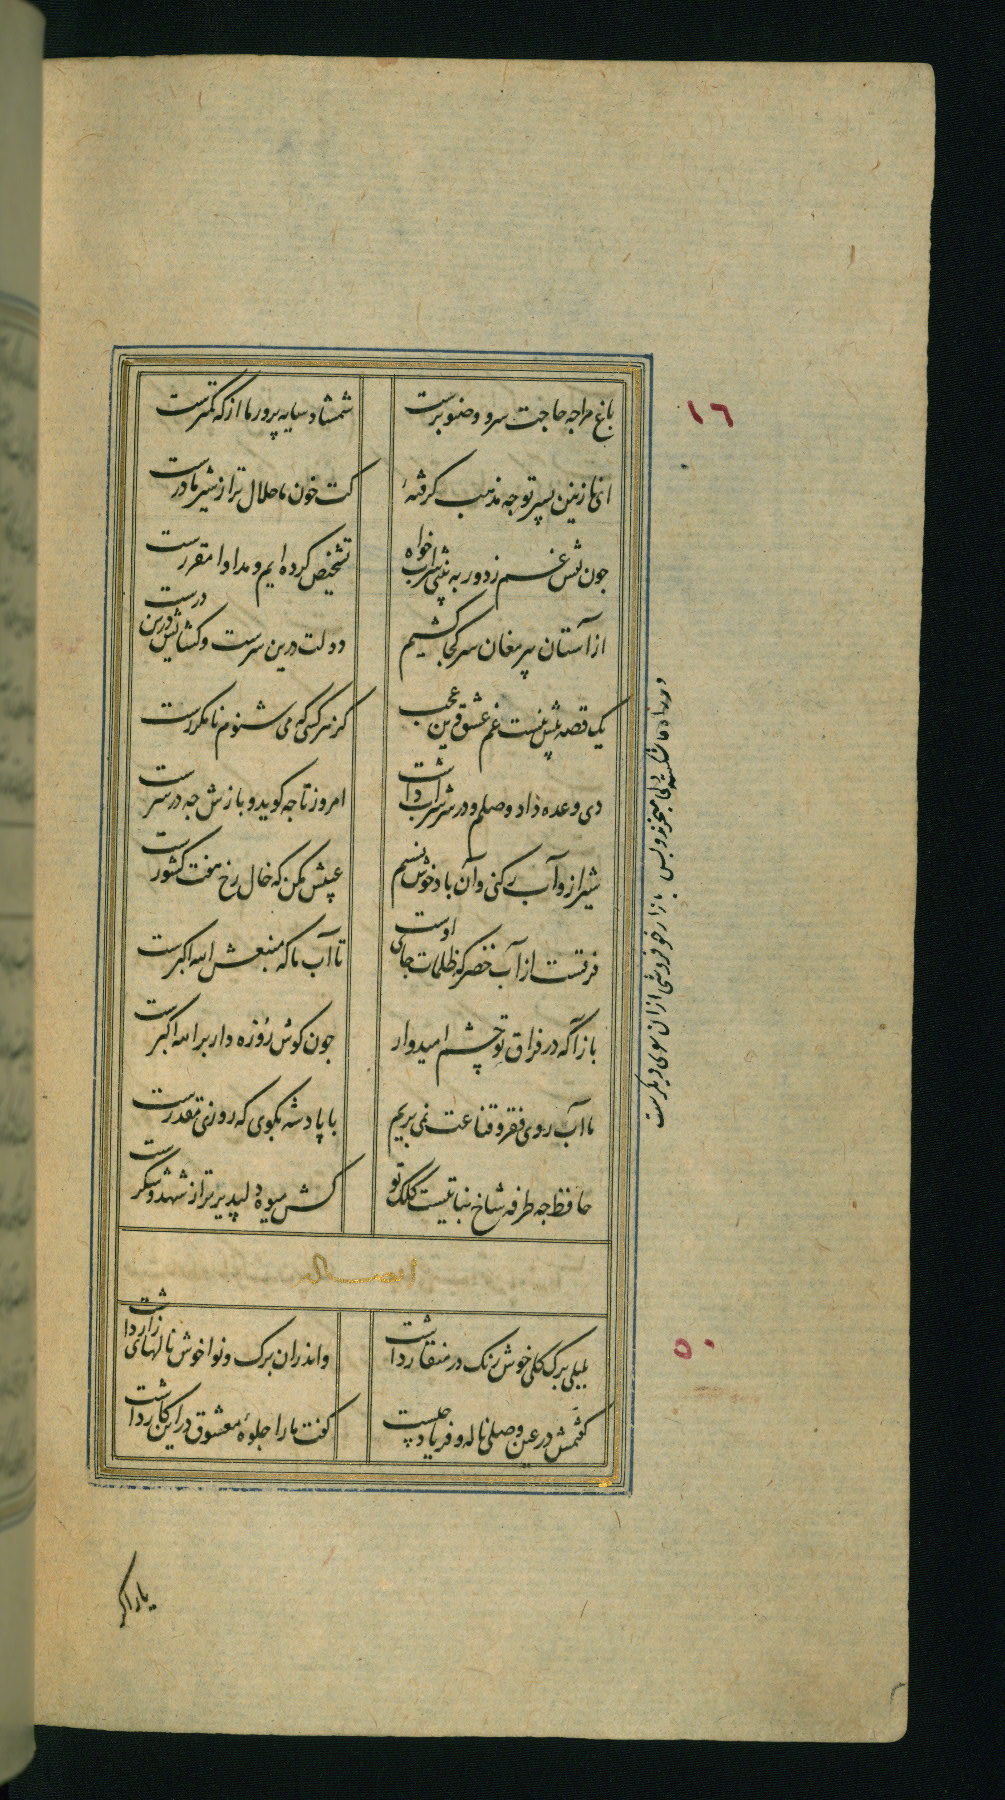 باغ مراجه حاجت سرو و صنوبرست شمشاد سایه پرور ما از که کمترست
ای نازنین پسر تو جه مذهب گرفتهٔ کت خون ما حلال تر از شیر مادرست
جون نقش غم ز دور به بینی شراب خواه تشخیص کرده ایم و مداوا مقررست
از آستان پیر مغان سر کجا کشیم دولت درین سرست و کشایش درین درست
یک قصه بیش نیست غم عشق وین عجب کز هر کسی که می شنوم نا مکررست
دی وعده داد وصلم و در سر شراب داشت امروز تا جه کوید و بازش جه در سرست
شیراز و آب رکنی و آن باد خوش نسیم عیبش مکن که خال رخ هفت کشورست
فرقست از آب خضر که ظلمات جای اوست تا آب ما که منبعش الله اکبرست
بازآ که در فراق تو چشم امیدوار جون کوش روزه دار بر الله اکبرست
ما آب روی فقر و قناعت نمی بریم با پادشه بکوی که روزی مقدرست
حافظ جه طرفه شاخ نباتیست کلک تو کش میوه دلپذیرتر از شهد و شکرست
۱٦
در راه ما شکسته دلی میخرند و بس بازار خودفروشی از ان سوی دیکرست
بلبلی برک کلی خوش رنک در منقار داشت واندران برک و نوا خوش نالهای زار داشت
کفتمش در عین وصل ناله و فریاد چیست کفت ما را جلوهٔ معشوق در این کار داشت
۵۰
یار اکر